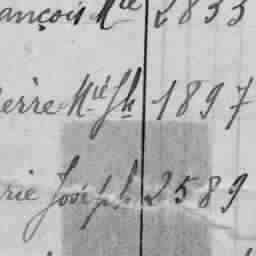 ançois Mie 2833
ierre Mie Jh 1897
rie Joseph 2589